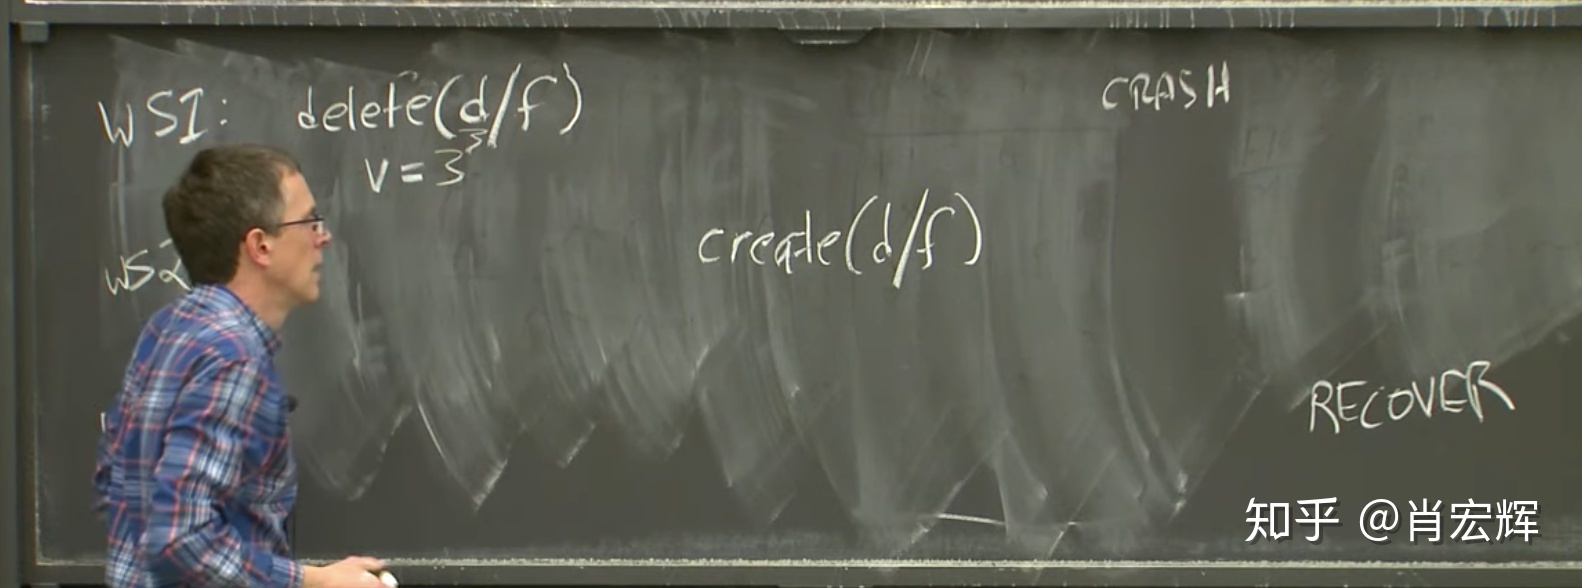 WS1: delete(d/f)
3
v = 3
CRASH
create(d/f)
WS2
RECOVER
知乎 @肖宏辉